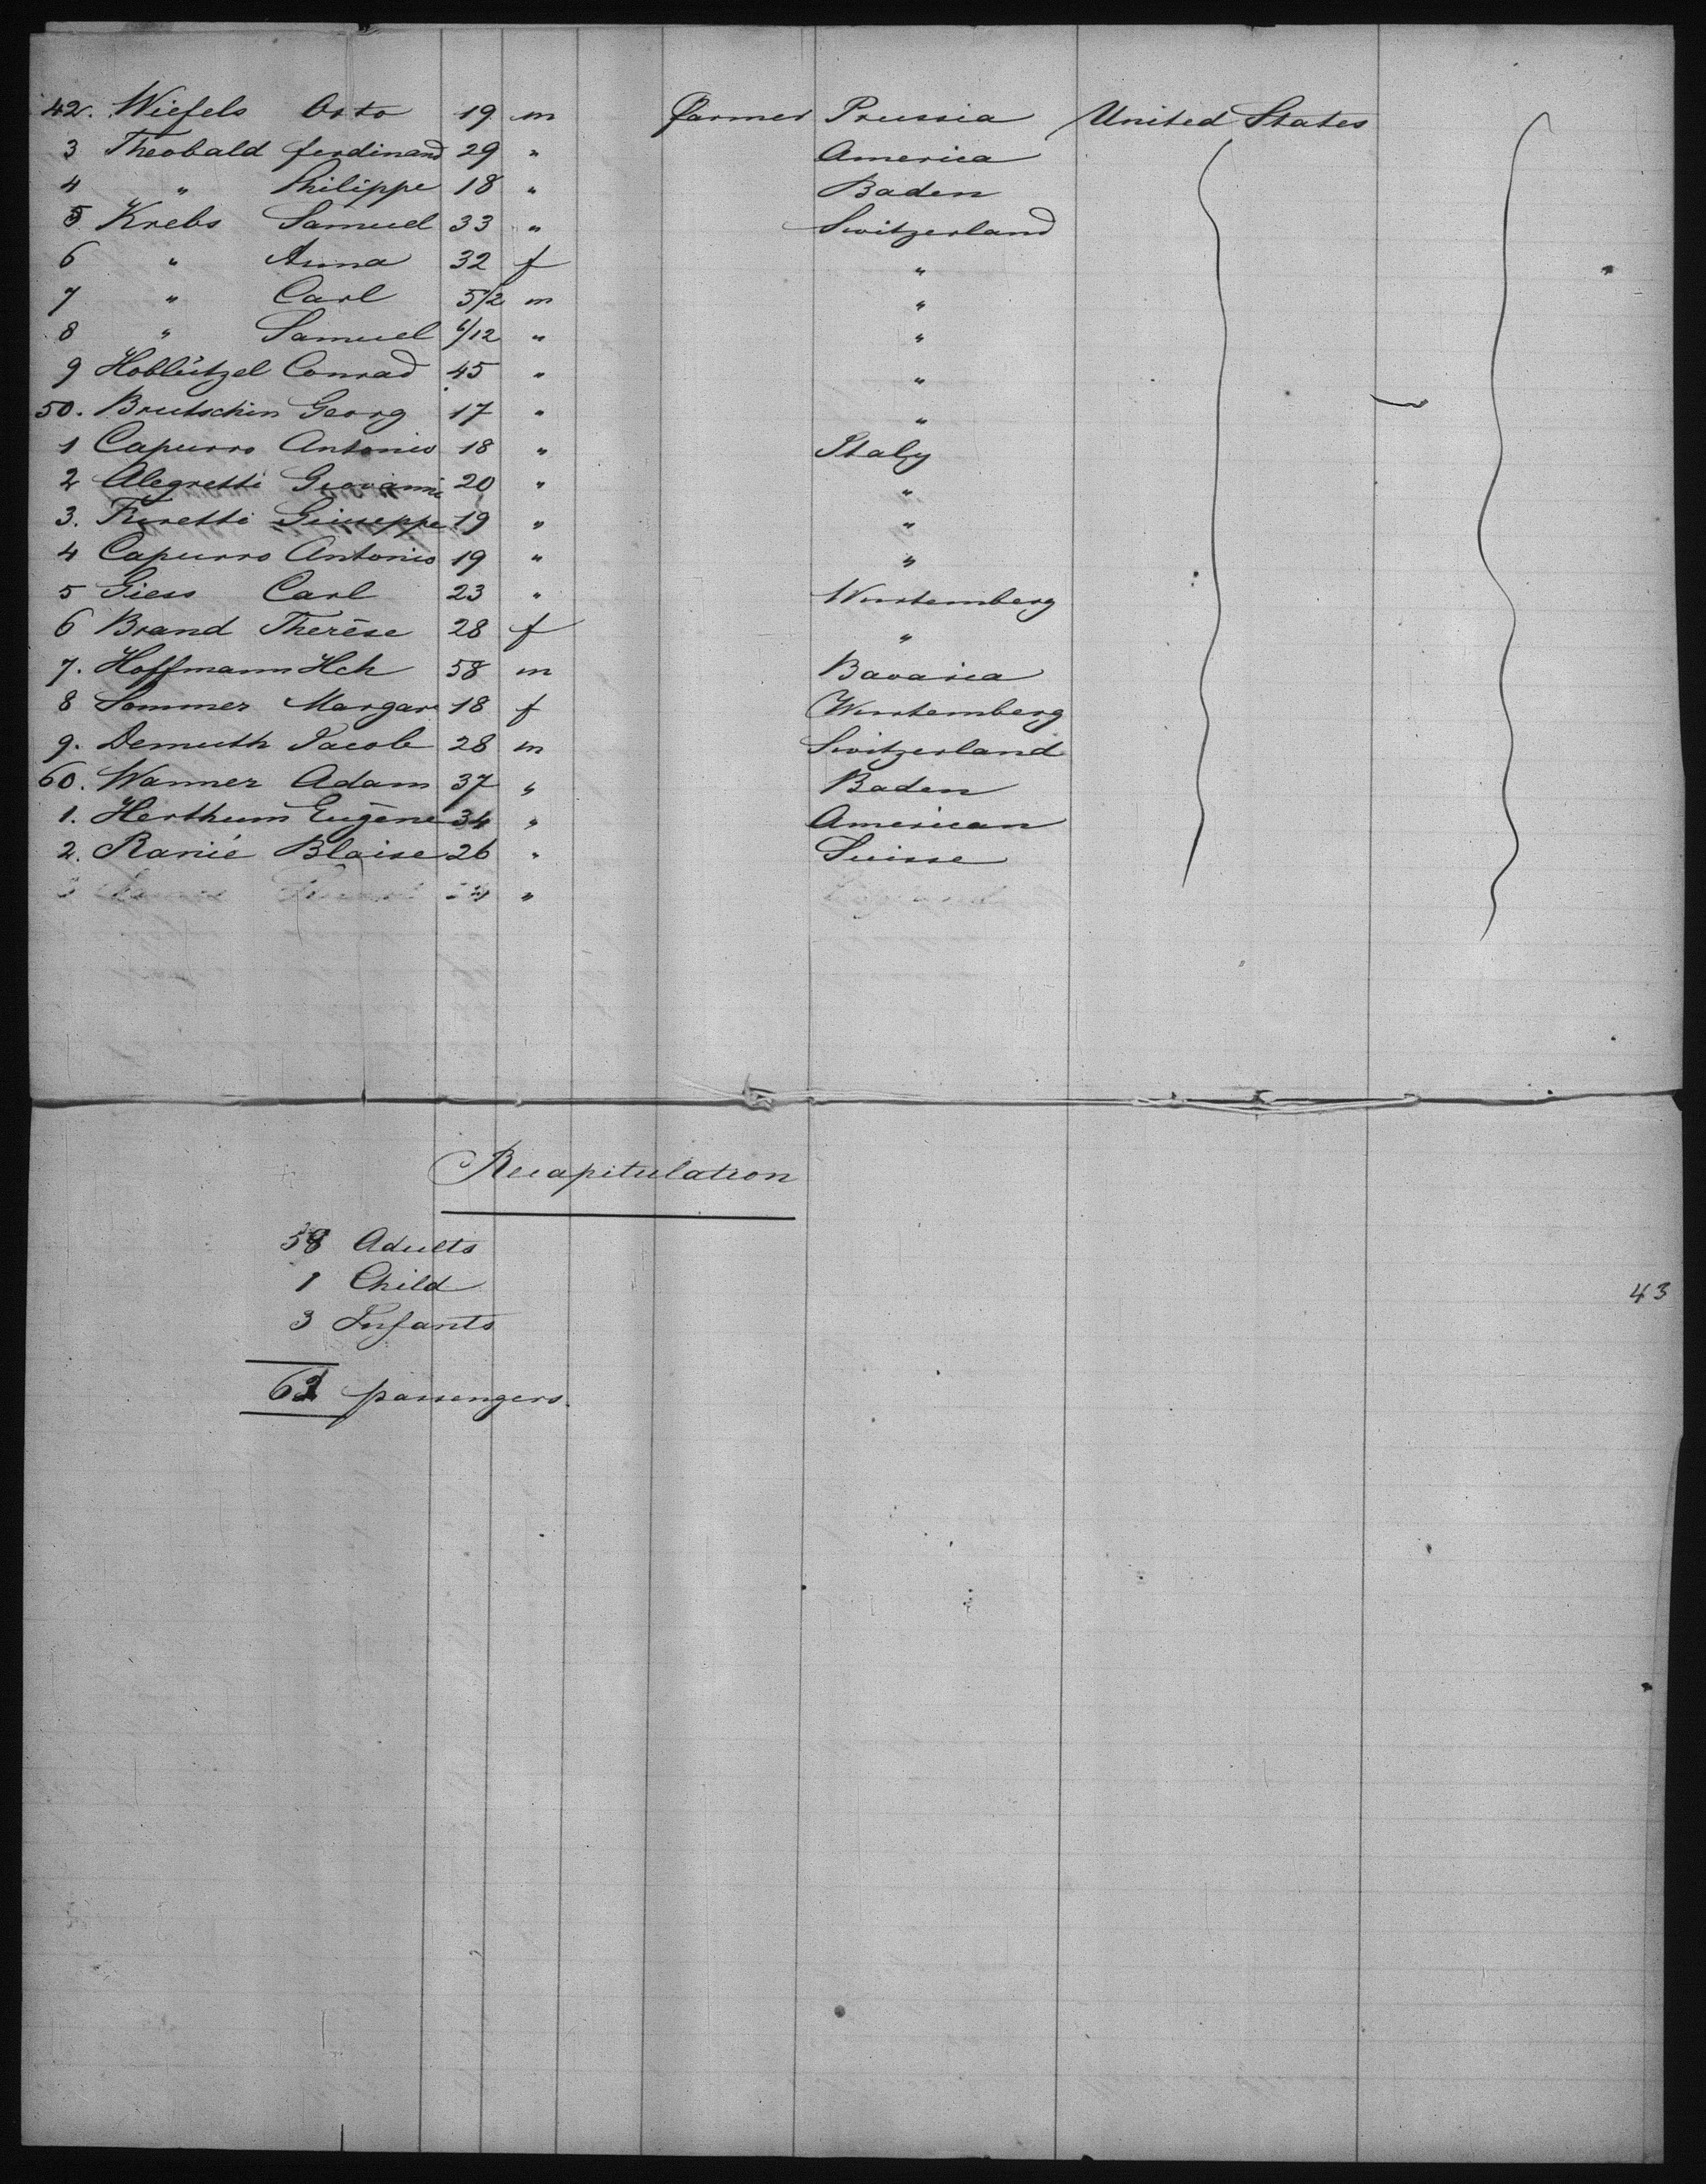 42. Wiefels Otto 19 m farmer Prussia United States
3 Theobald ferdinand 29 " America
4 " Philippe 18 " Baden
5 Krebs Samuel 33 " Switzerland
6 " Anna 32 f "
7 " Carl 5/2 m "
8 " Samuel 6/12 " "
9 Hoblützel Conrad 45 " "
50. Brutschin Georg 17 " "
1 Capurro Antonio 18 " Italy
2 Alegretti Giovanni 20 " "
3. Giuseppe 19 " "
4 Capurro Antonio 19 " "
5 Giess Carl 23 " Wurtemberg
6 Brand Therèse 28 f "
7. Hoffmann Hch 58 m Bavaria
8 Sommer Margar 18 f Wurtemberg
9. Demuth Jacob 28 m Switzerland
60. Wanner Adam 37 " Baden
1. Herthum Eugène 34 " American
2. Ranié Blaise 26 " Suisse
3 "
Recapitulation
58 Adults
1 Child
3 Infants
62 passengers.
43